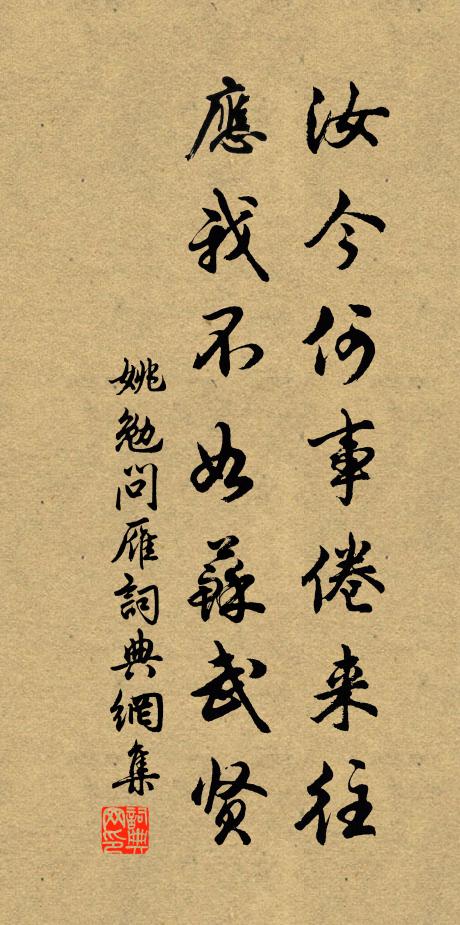 汝今何事倦来往
應我不如蘇武贤
姚勉問雁詞典網集
詞典网印